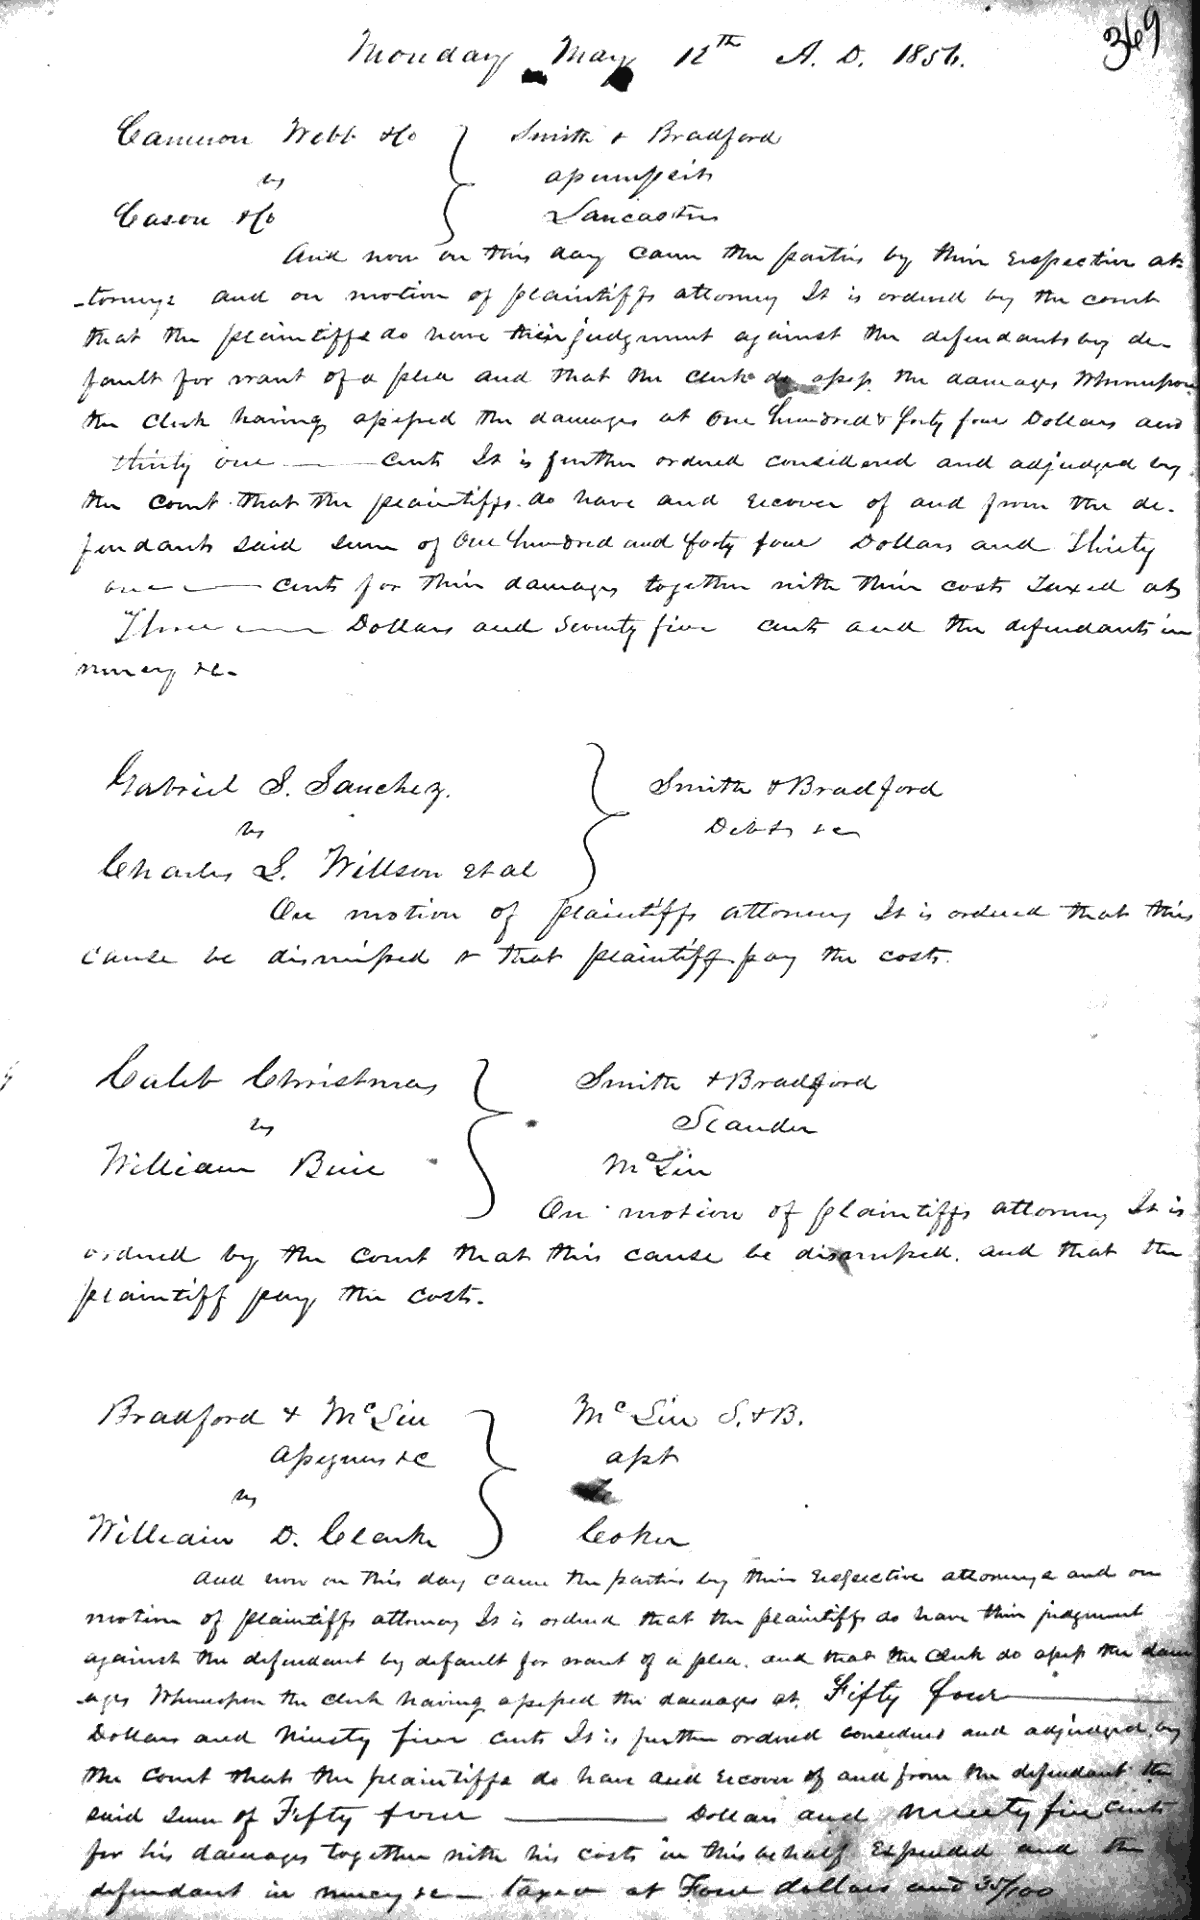 369
Monday May 12th A. D. 1856.
Cameron Webb & Co } Smith & Bradford
vs assumpsit
Cason & Co } Lancaster
And now on this day came the parties by their respective at-
-torneys and on motion of plaintiffs attorney It is ordered by the court
that the plaintiffs do have their judgment against the defendants by de-
fault for want of a plea and that the clerk do assess the damages Whereupon
the clerk having assessed the damages at One hundred & forty four Dollars and
thirty one ——— cents It is further ordered considered and adjudged by
the court that the plaintiffs do have and recover of and from the de-
fendants said sum of One hundred and forty four Dollars and Thirty
one ——— cents for their damages together with their costs Taxed at
Three ——— Dollars and Seventy five cents and the defendants in
mercy &c-
Gabriel S. Sanchez. } Smith & Bradford
vs Debts &c
Charles L. Willson et al
On motion of plaintiffs attorney It is ordered that this
cause be dismissed & that plaintiff pay the costs.
Caleb Christmas } Smith & Bradford
vs Slander
William Buie McLin
On motion of plaintiffs attorney It is
ordered by the court that this cause be dismissed. and that the
plaintiff pay the costs.
Bradford & McLin } McLin S. & B.
assignees &c asst
vs
William D. Clarke Coker
And now on this day came the parties by their respective attorneys and on
motion of plaintiffs attorney It is ordered that the plaintiffs do have their judgment
against the defendant by default for want of a plea. and that the clerk do assess the dam
-ages Whereupon the clerk having assessed the damages at Fifty four ———
Dollars and Ninety five cents It is further ordered considered and adjudged by
the court that the plaintiffs do have and recover of and from the defendant the
said sum of Fifty four ——— Dollars and Ninety five cents
for his damages together with his costs in this behalf Expended and the
defendant in mercy &c — taxed at Four dollars and 35/100